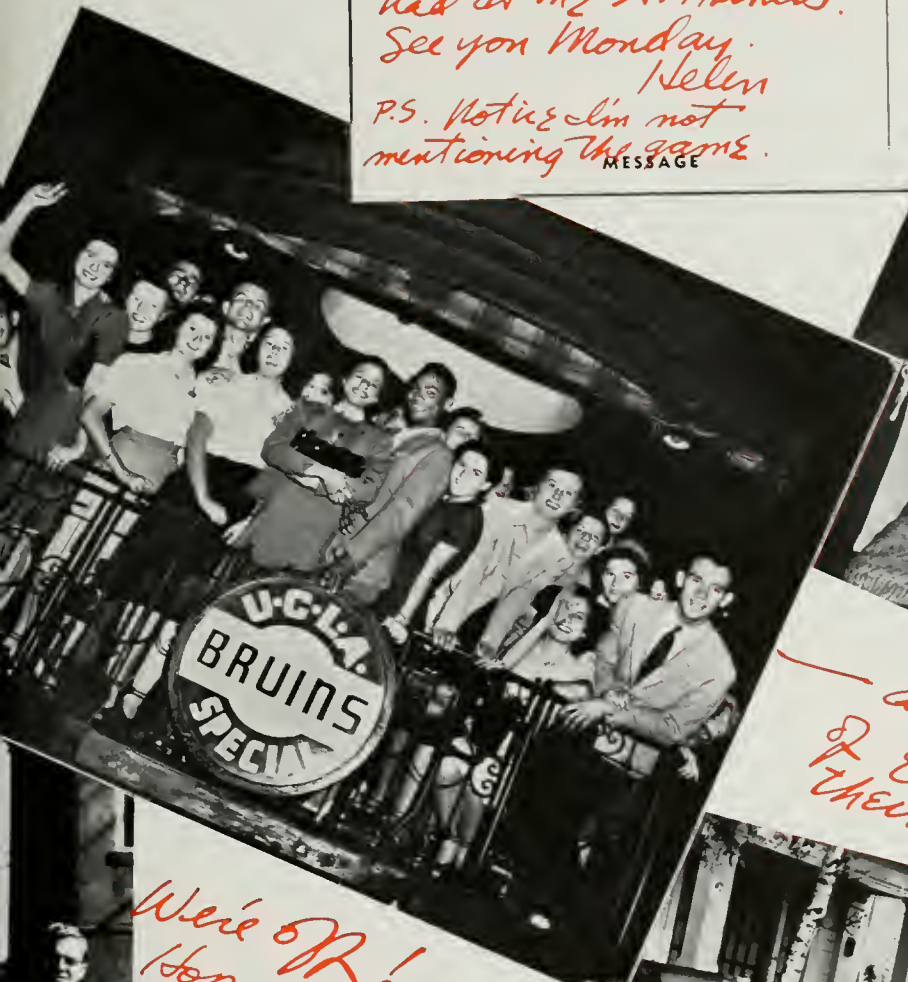 had at the St.
See you Monday.
Helen
P.S. Notice I'm not
mentioning the game.
MESSAGE
U·C·L·A·
BRUINS
SPECIAL
of
We're off!